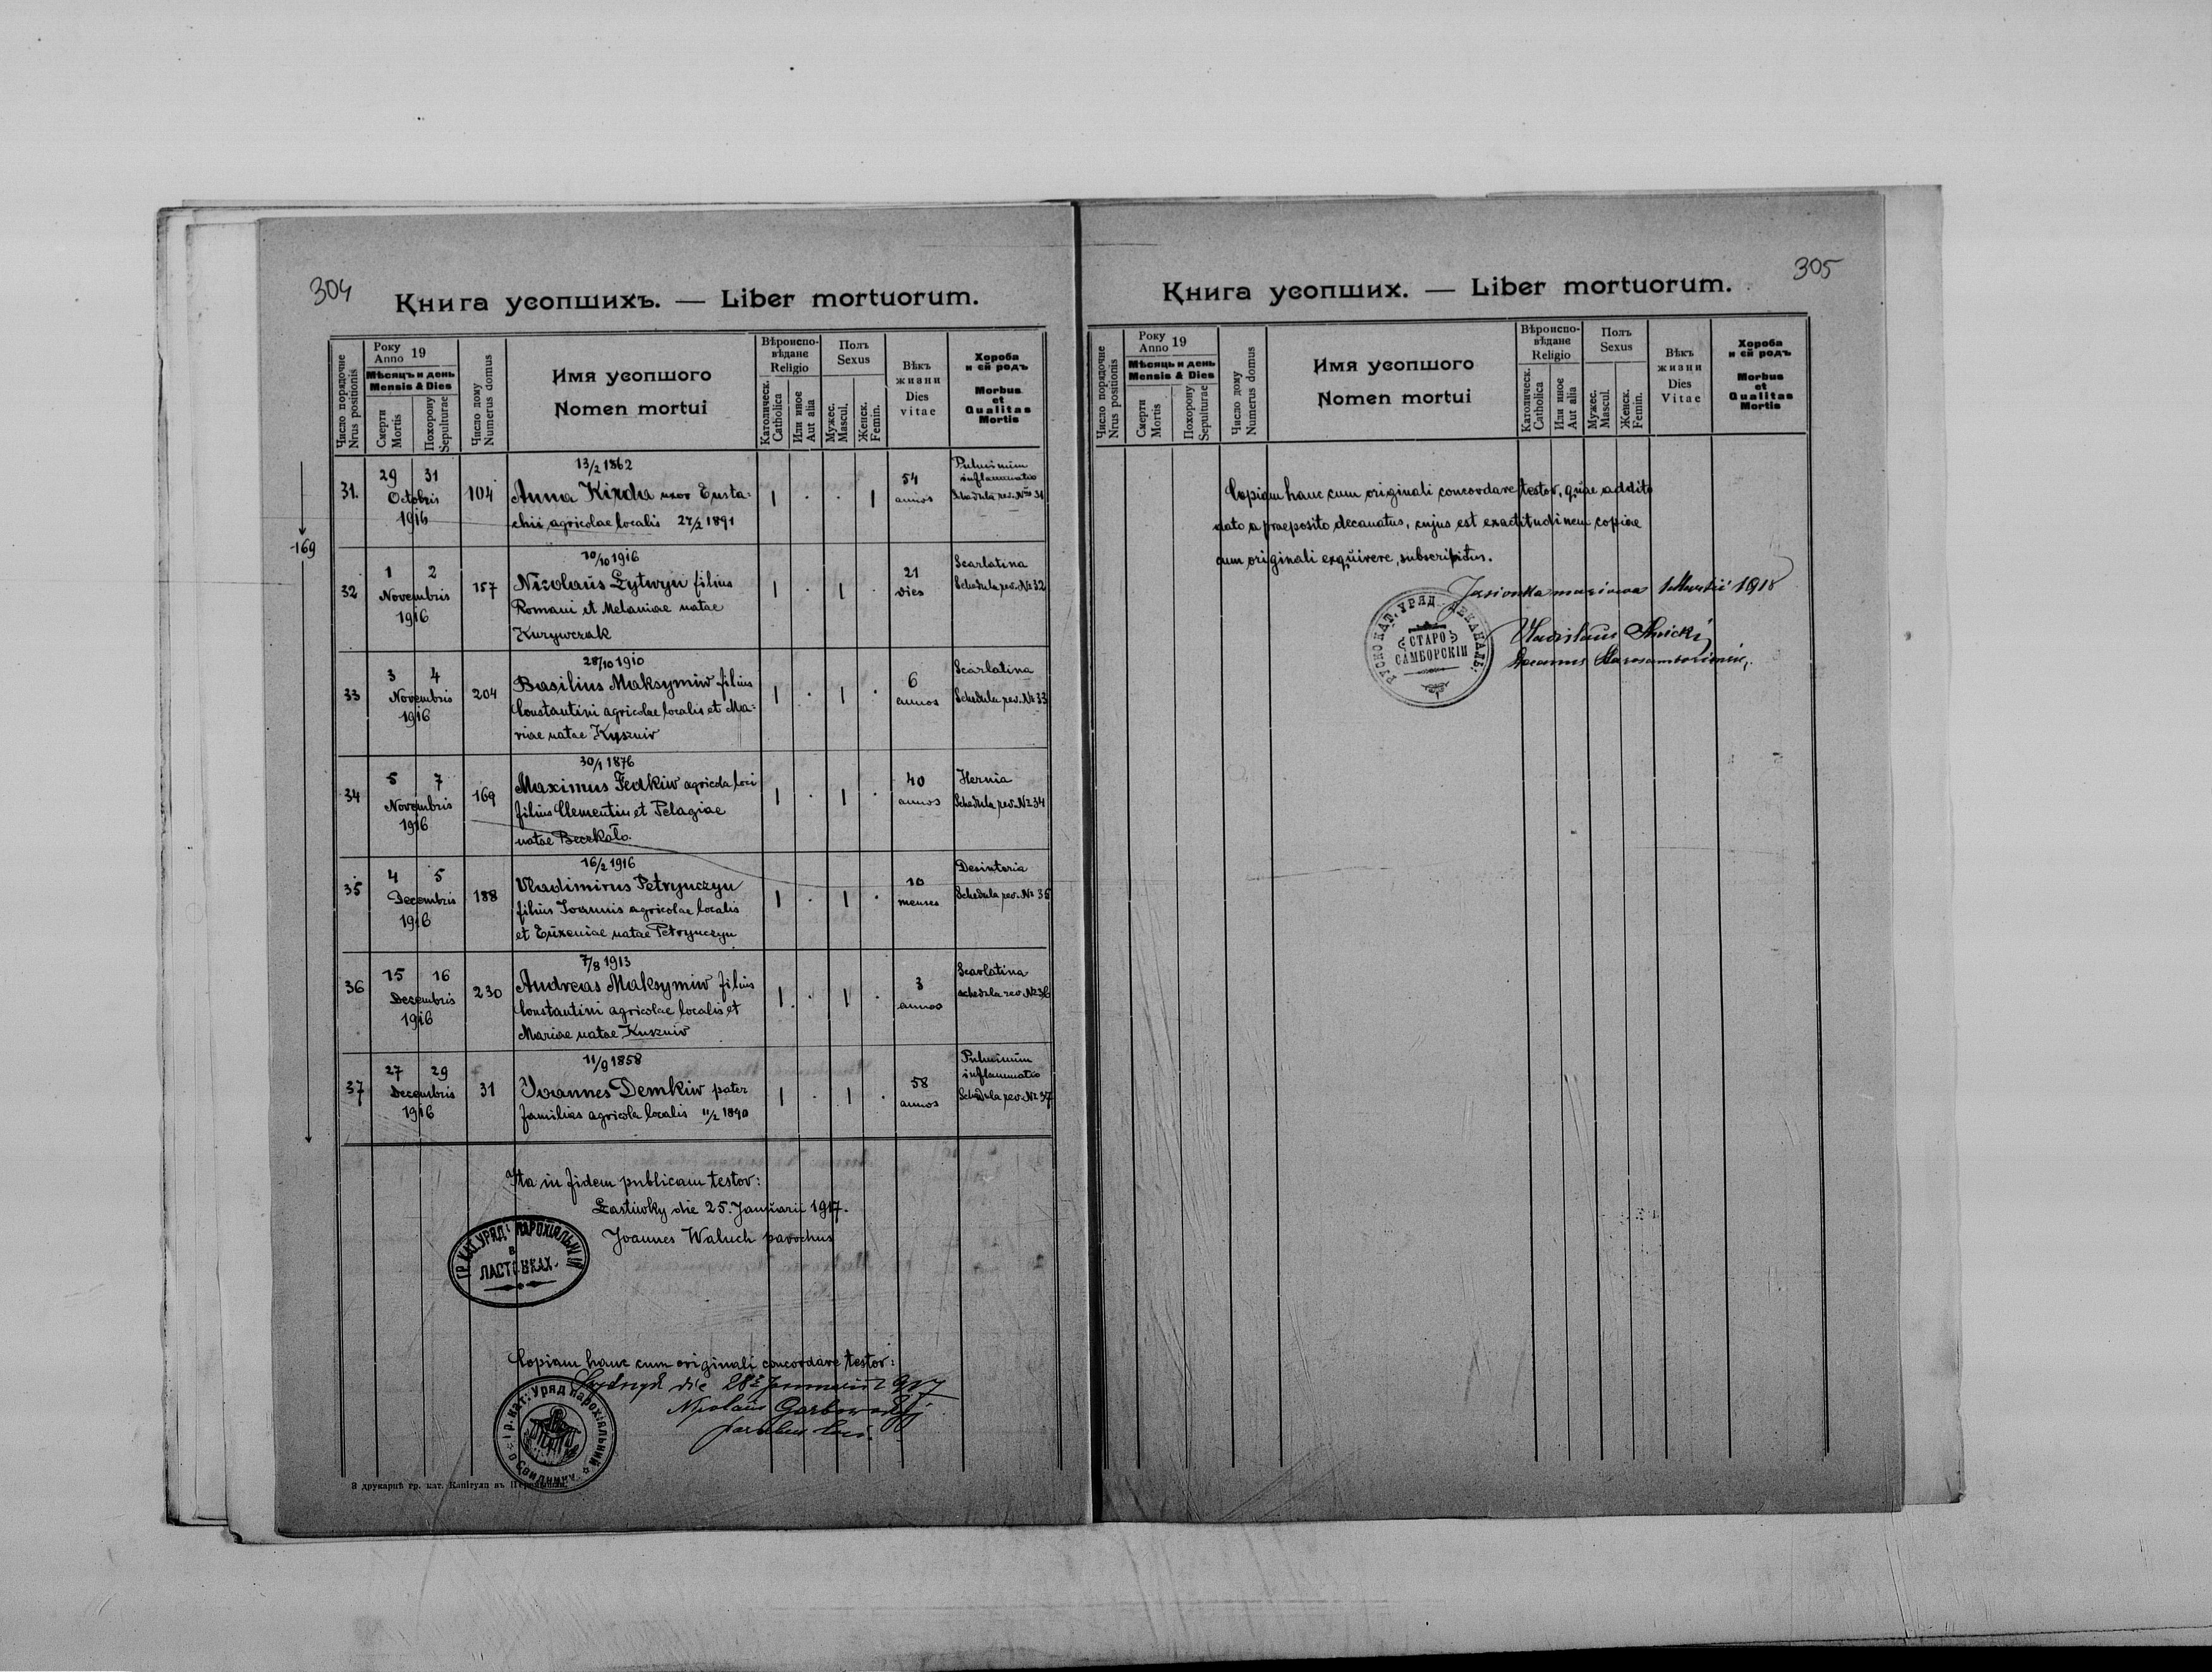 304
Книга усопшихъ. — Liber mortuorum.
Число порядочне
Nrus positionis
Року
Anno 19
Мѣсяцъ и день
Mensis & Dies
Смерти
Mortis
Похорону
Sepulturae
Число дому
Numerus domus
Имя усопшого
Nomen mortui
Вѣроиспо-
вѣдане
Religio
Католическ.
Catholica
Или иное
Aut alia
Полъ
Sexus
Мужес.
Mascul.
Женск.
Femin.
Вѣкъ
жизни
Dies
vitae
Хороба
и єй родъ
Morbus
et
Qualitas
Mortis
169
31. 29 31 Octobris 1916 104
13/2 1862
Anna Kinda uxor Eusta-
chii agricolae localis 27/2 1891
54 annos
Pulmimum
inflammatio
Schedula rev. Nro 31
32 1 2 Novembris 1916 157
10/10 1916
Nicolaus Łytwyn filius
Romani et Melaniae natae
Kurywczak
21 dies
Scarlatina
Schedula rev. № 32
33 3 4 Novembris 1916 204
28/10 1910
Basilius Maksymiw filius
Constantini agricolae localis et Ma-
riae natae Kyszniv
6 annos
Scarlatina
Schedula rev. № 33
34 5 7 Novembris 1916 169
30/1 1876
Maximus Fedkiw agricola loci
filius Clementiu et Pelagiae
natae Beczkało.
40 annos
Hernia
Schedula rev. № 34
35 4 5 Decembris 1916 188
16/2 1916
Vladimirus Petrynczyn
filius Joannis agricolae localis
et Euxeniae natae Petrynczyn
10 menses
Desinteria
Schedula rev. № 35
36 15 16 Decembris 1916 230
7/8 1913
Andreas Maksymiw filius
Constantini agricolae localis et
Mariae natae Kuszniv
3 annos
Scarlatina
schedula rev № 36
37 27 29 Decembris 1916 31
11/9 1858
Joannes Demkiw pater
familias agricola localis 11/2 1890
58 annos
Pulmimum
inflammatio
Schedula rev. № 37
Ita in fidem publicam testor:
Łastiwky die 25. Januarii 1917.
Joannes Waluch parochus
ГР. КАТ. УРЯДЪ ПАРОХІЯЛЬНИЙ
В
ЛАСТОВКАХ.
Copiam hanc cum originali concordare testor:
die 28
Nicolaus
parochus loci.
гр. кат. Уряд парохіяльний
В друкарнѣ гр. кат. Капітули въ Перемышли.
305
Книга усопших. — Liber mortuorum.
Число порядочне
Nrus positionis
Року
Anno 19
Мѣсяць и день
Mensis & Dies
Смерти
Mortis
Похорону
Sepulturae
Число дому
Numerus domus
Имя усопшого
Nomen mortui
Вѣроиспо-
вѣдане
Religio
Католическ.
Catholica
Или иное
Aut alia
Полъ
Sexus
Мужес.
Mascul.
Женск.
Femin.
Вѣкъ
жизни
Dies
Vitae
Хороба
и єй родъ
Morbus
et
Qualitas
Mortis
Copiam hanc cum originali concordare testor, quae addito
dato a praeposito decanatus, cujus est exactitudinem copiae
cum originali exquirere, subscribitur.
Jasionka masiowa 1 Martii 1918
СТАРО
САМБОРСКІЙ
Decanus Starosamboriensis.